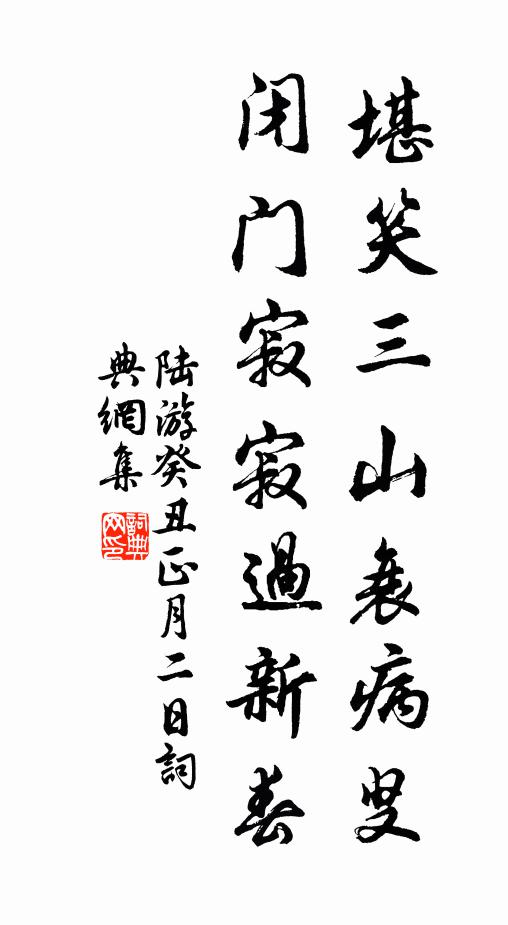 堪笑三山衰病叟
闭门寂寂過新春
陆游癸丑正月二日詞
典網集
詞典网印